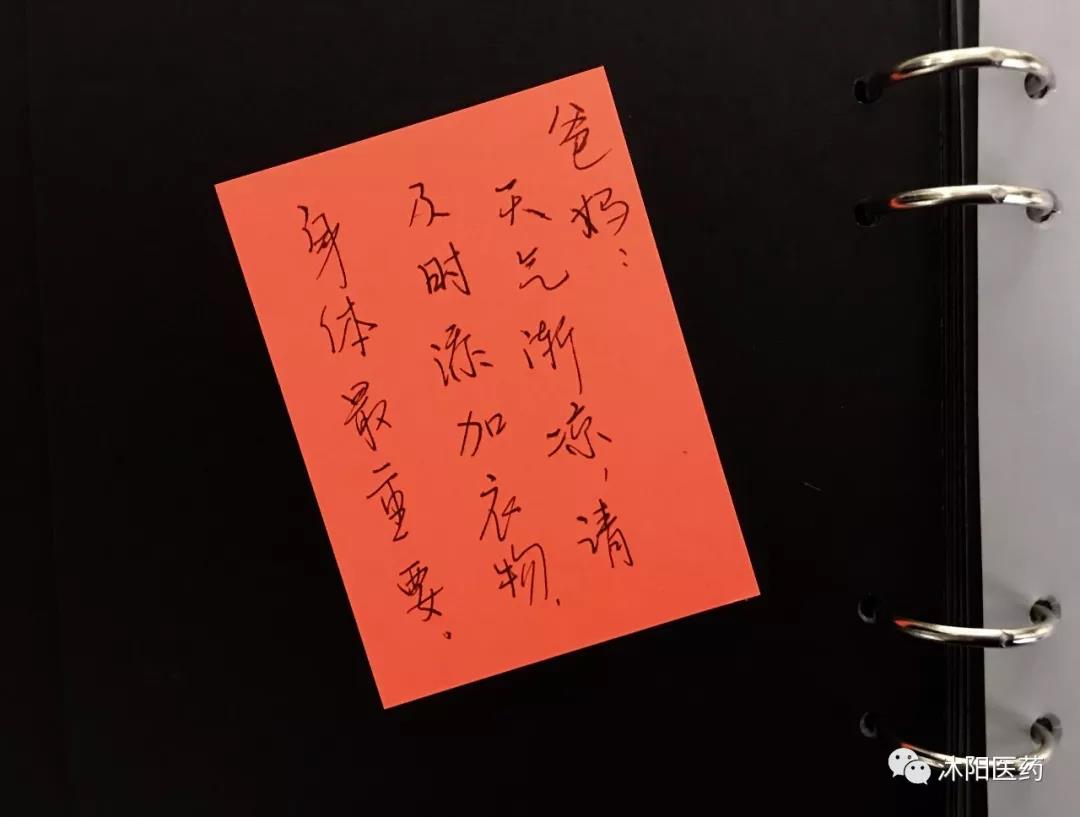 爸妈：
天气渐凉，请
及时添加衣物，
身体最重要。
沐阳医药